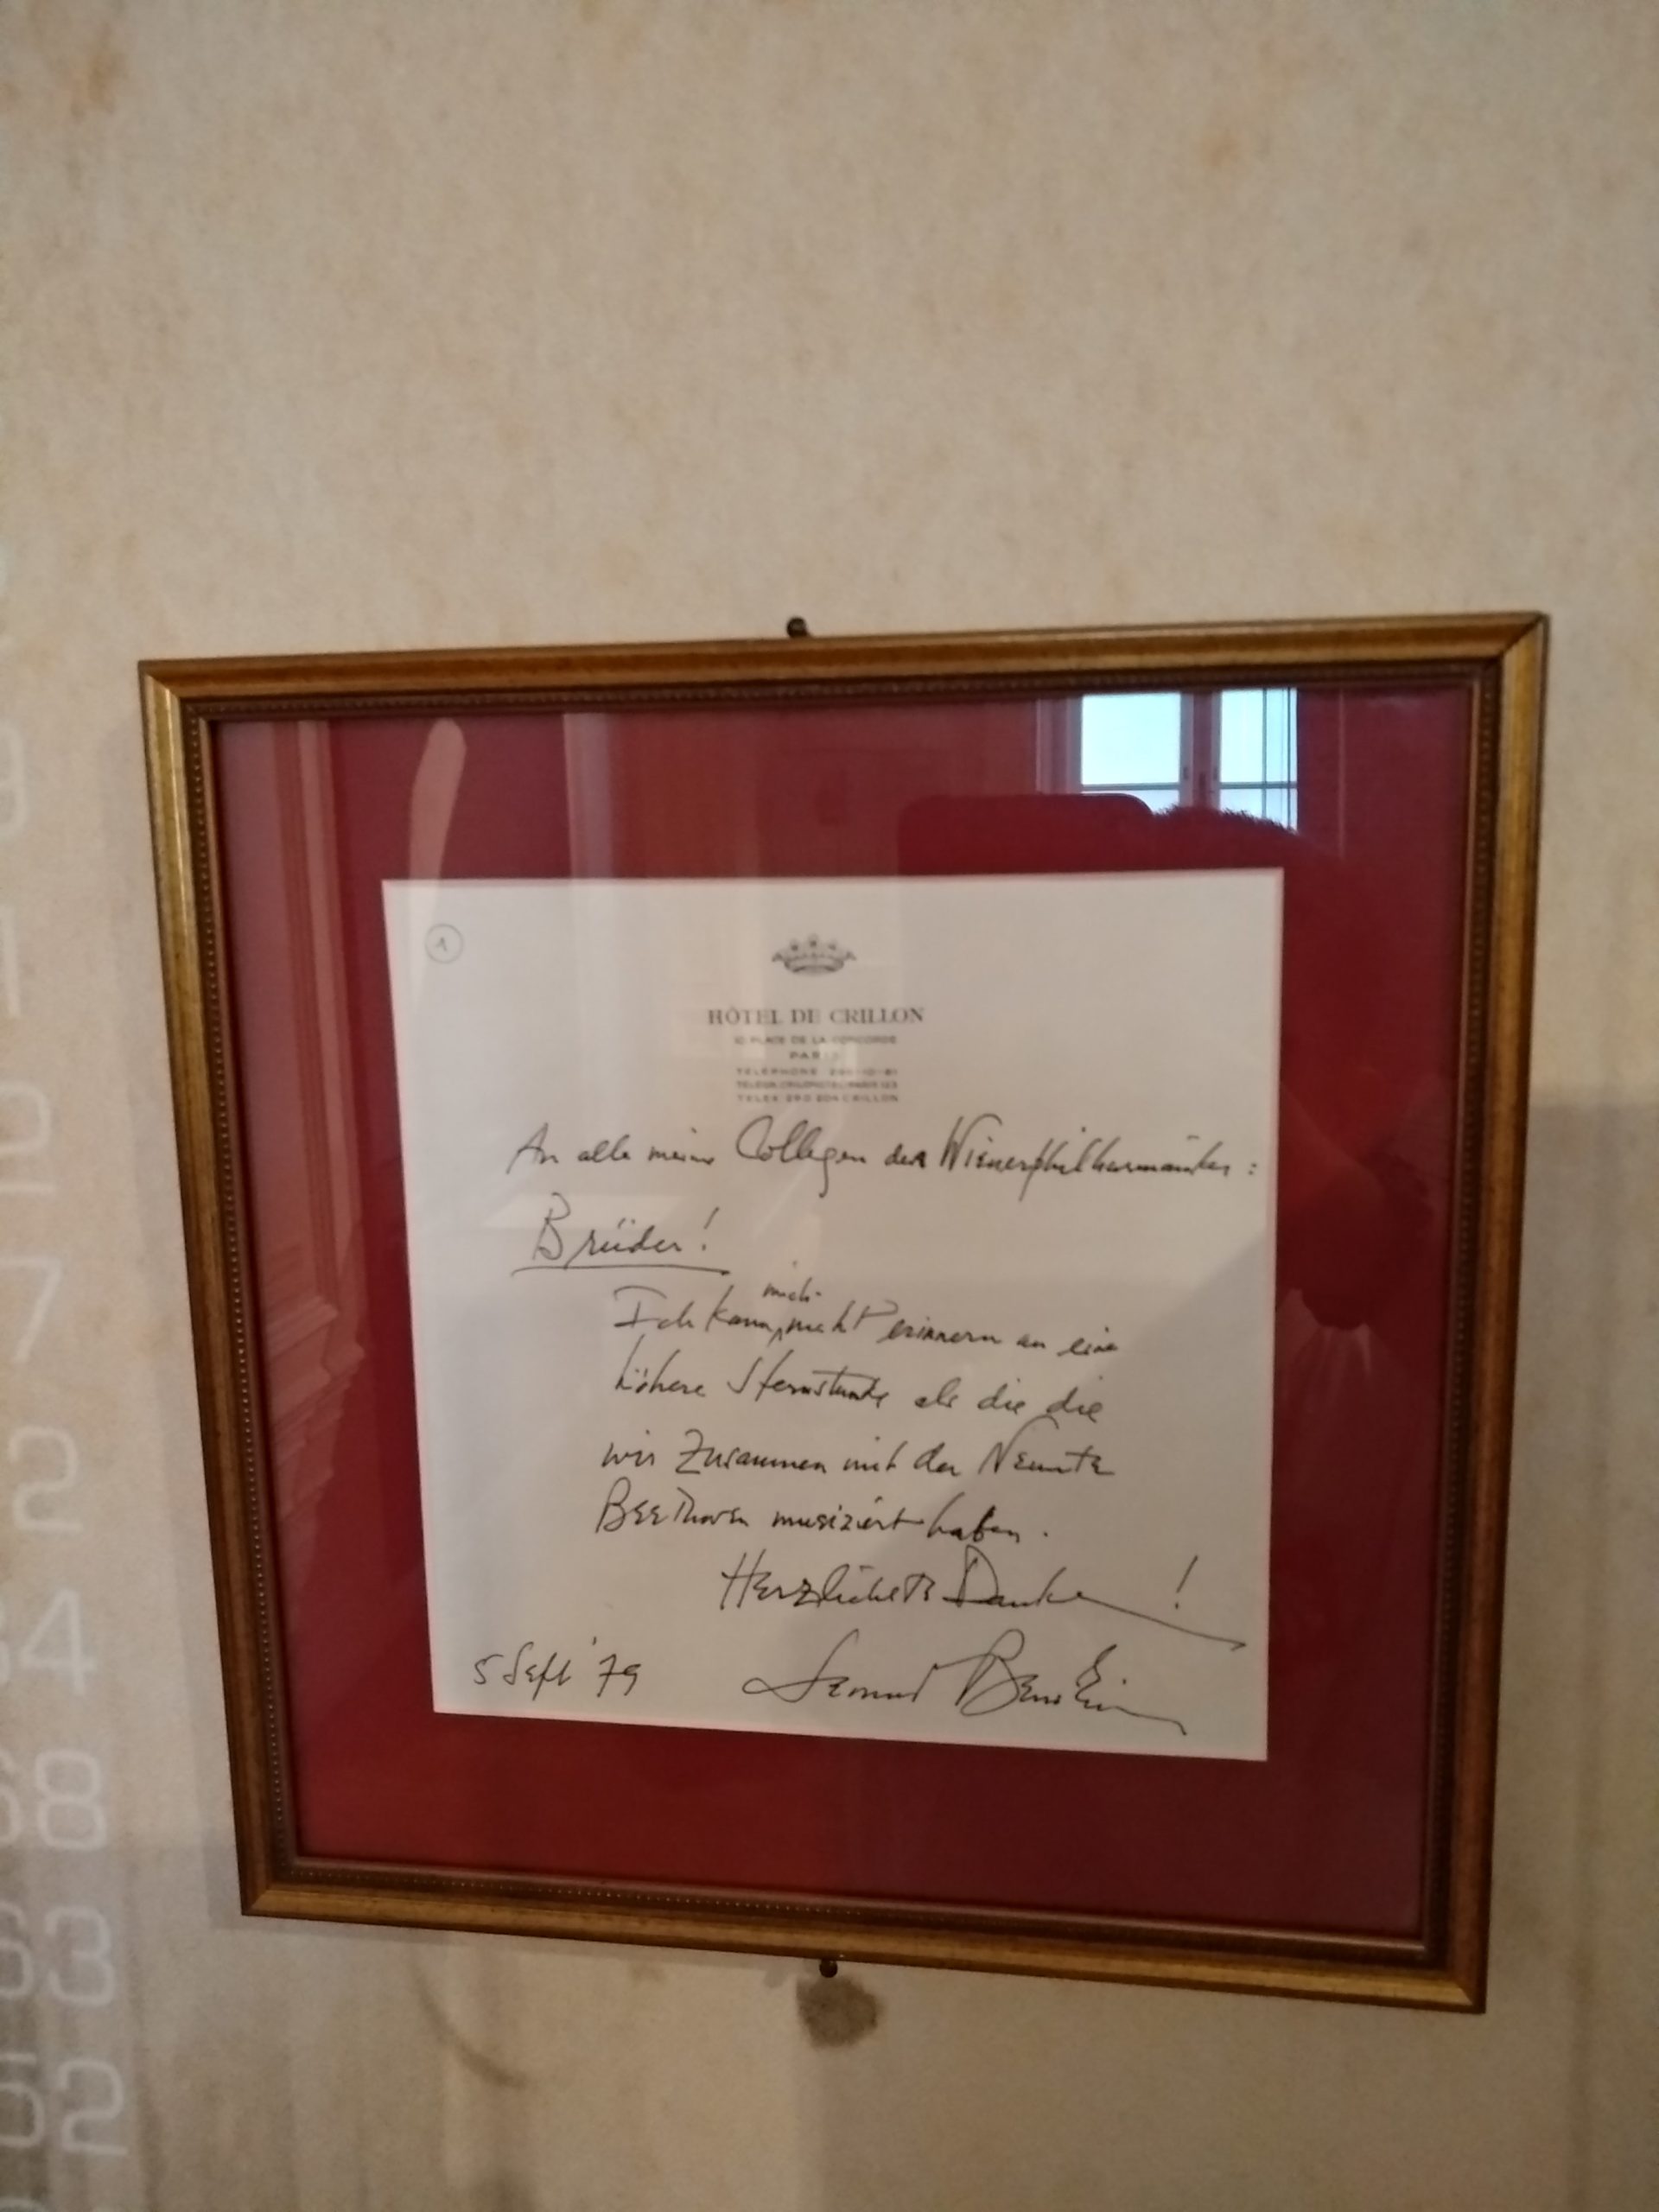 1
HÔTEL DE CRILLON
10 PLACE DE LA CONCORDE
PARIS
TÉLÉPHONE
TELEX 290 204 CRILLON
An alle meine Collegen der Wienerphilharmoniker:
Brüder!
mich
Ich kann nicht erinnern an eine
höhere Sternstunde als die die
wir zusammen mit der Neunte
Beethoven musiziert haben.
Herzlichste Danke!
5 Sept '79 Leonard Bernstein
9
1
2
7
2
34
68
63
02